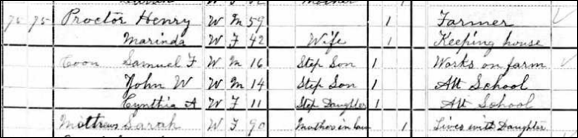 75 75 Proctor Henry W M 59 1 Farmer
Marinda W F 42 Wife 1 Keeping house
Coon Samuel F W M 16 Step Son 1 Works on farm
John W W M 14 Step Son 1 Att School
Cynthia A W F 11 Step Daughter 1 Att School
Mathews Sarah W F 90 Mother in law 1 Lives with Daughter